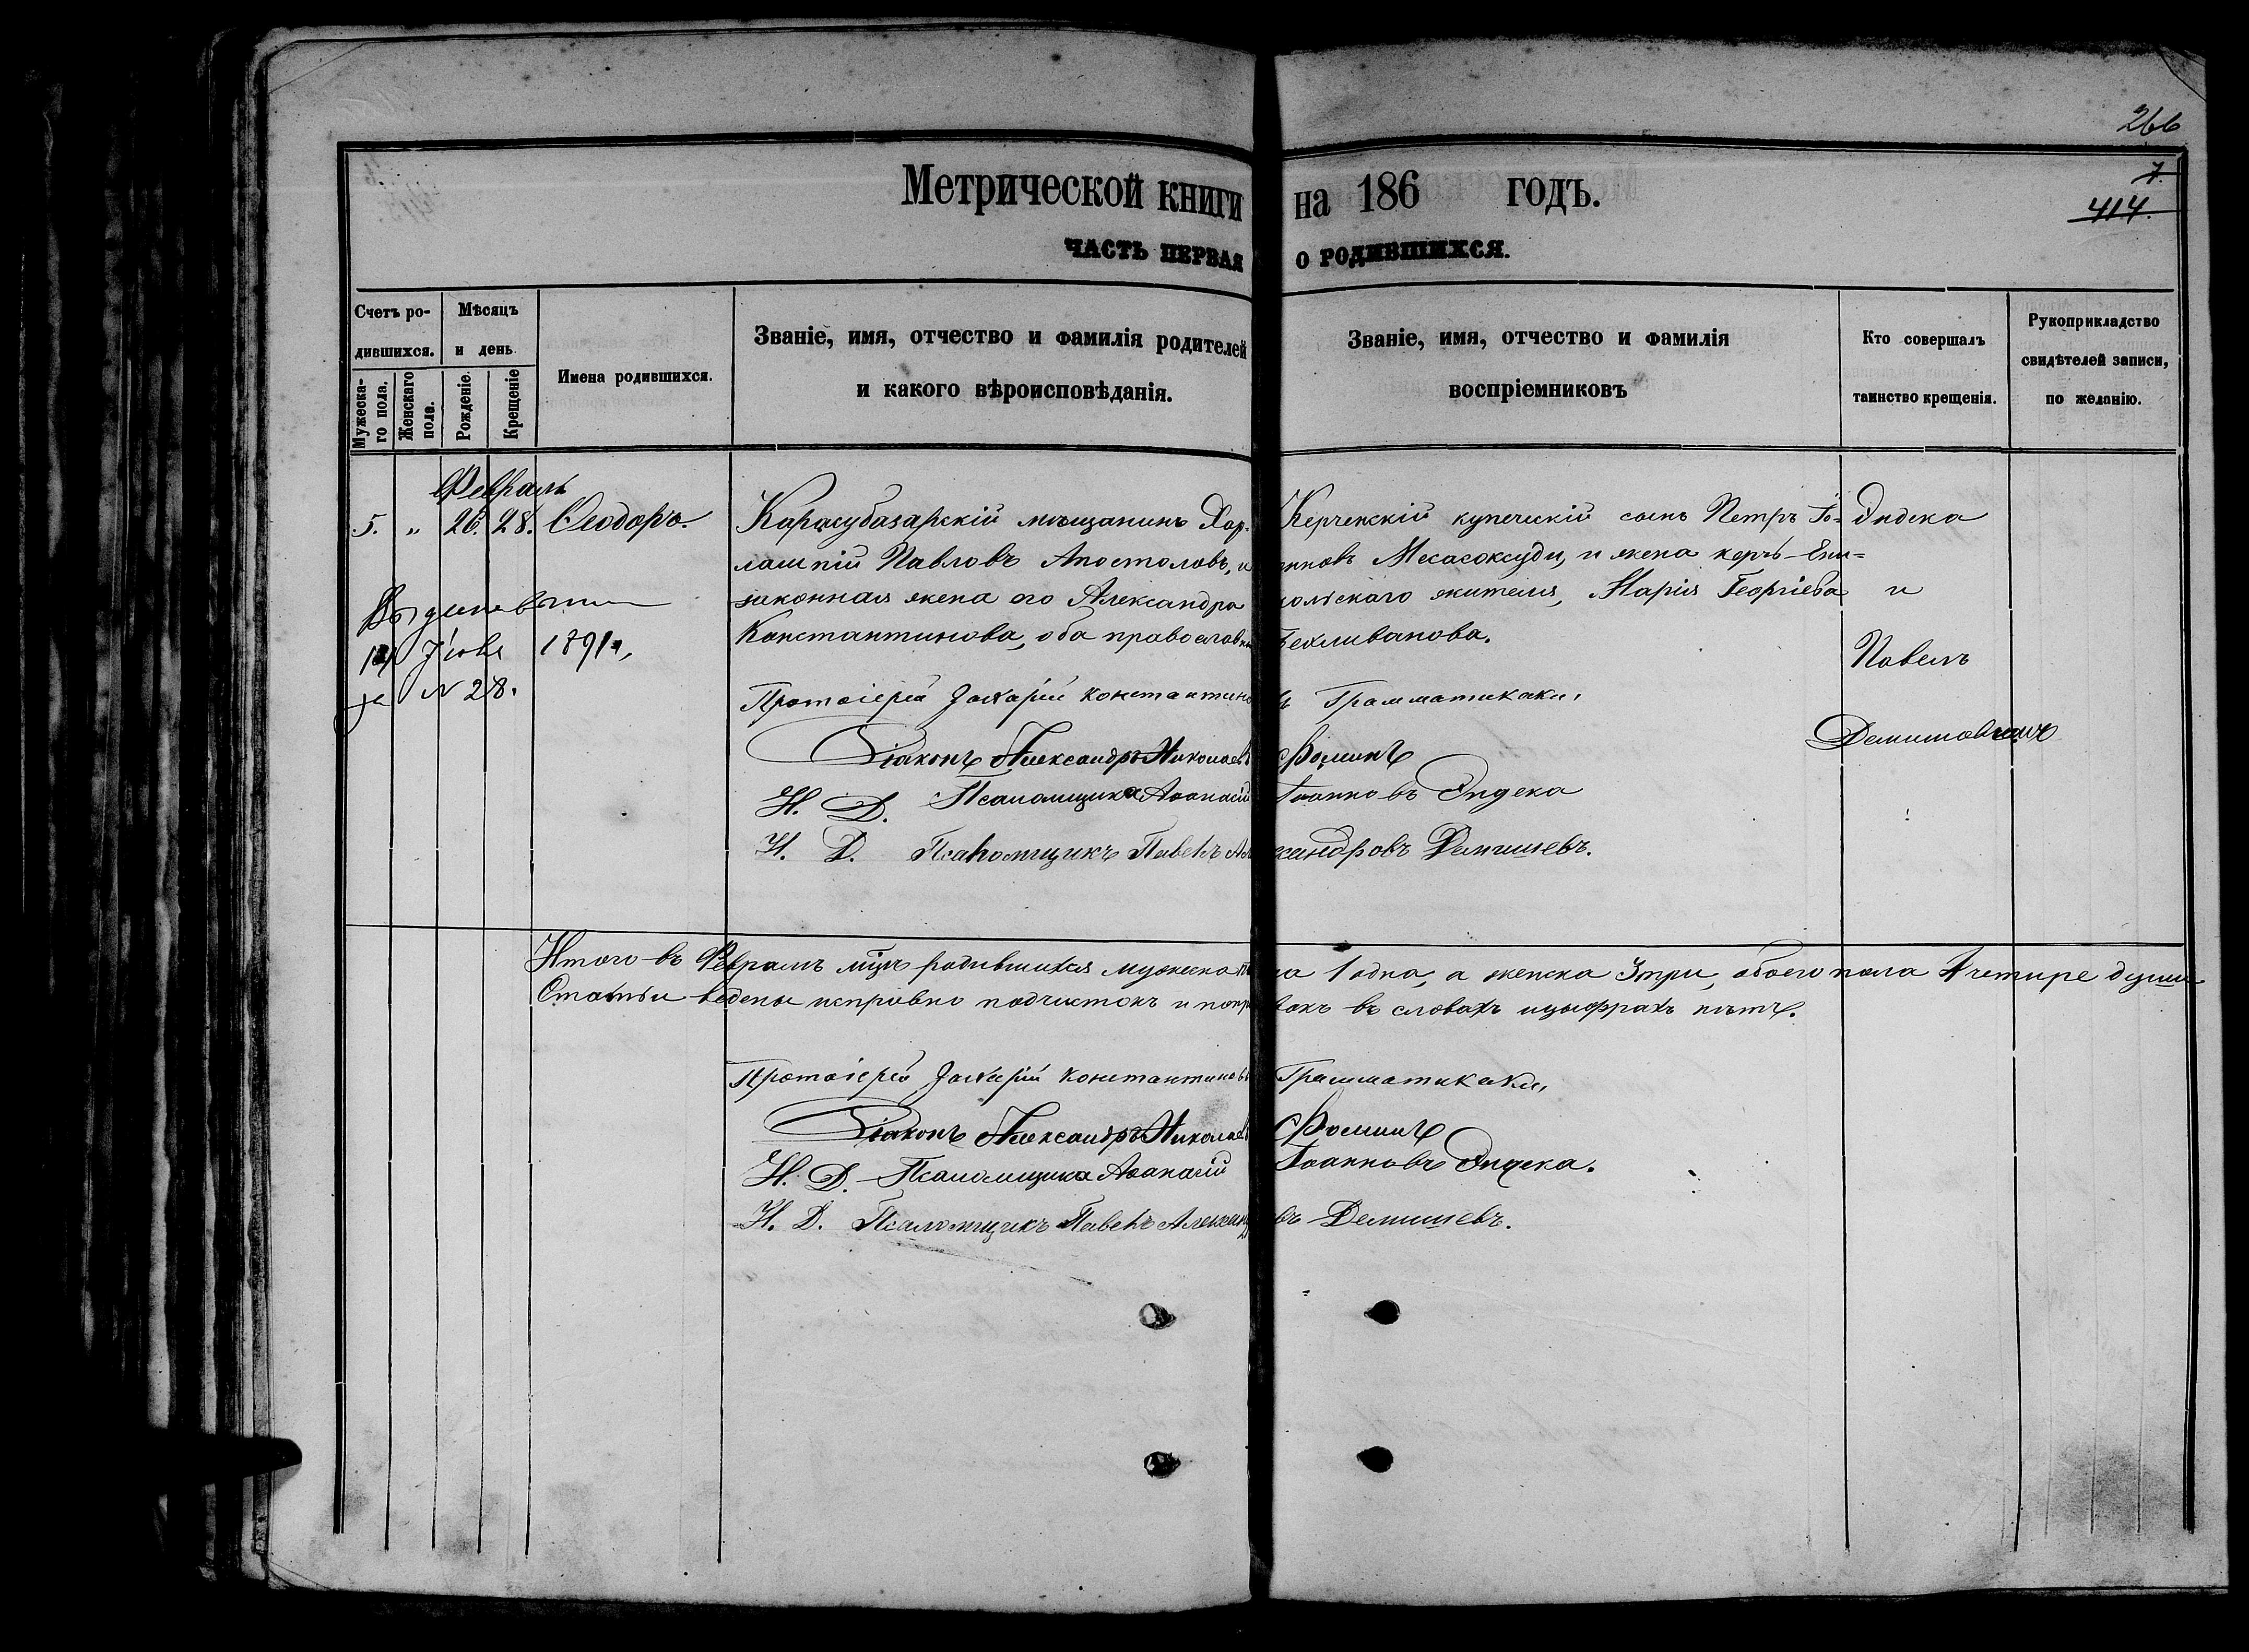 266
7.
414.
Метрической книги на 186 годъ.
ЧАСТЬ ПЕРВАЯ О РОДИВШИХСЯ.
Счетъ ро-
дившихся.
Мужеска-
го пола.
Женскаго
пола.
Мѣсяцъ
и день
Рожденіе.
Крещеніе
Имена родившихся.
Званіе, имя, отчество и фамилія родителей
и какого вѣроисповѣданія.
Званіе, имя, отчество и фамилія
воспріемниковъ
Кто совершалъ
таинство крещенія.
Рукоприкладство
свидѣтелей записи,
по желанію.
Февраль
5. „ 26. 28. Ѳеодоръ.
Іюня 1891
№ 28.
Карасубазарскій мѣщанинъ Хар-
лампій Павловъ Апостоловъ, и
законная жена его Александра
Константинова, оба православн
Керченскій купеческій сынъ Петръ Іо-
анновъ Месасоксуди, и жена керчь-Ени-
кольскаго жителя, Марія Георгіева
Пехливанова.
Эндека
и
Павелъ
Протоіерей Захарій Константиновъ Грамматикаки,
Діаконъ Александръ Николаевъ Фоминъ
И. Д. Псаломщика Аѳанасій Іоанновъ Эндека
И. Д. Псаломщикъ Павелъ Александровъ Демишевъ.
Итого въ Февралѣ мцѣ родившихся мужеска пола 1 одна, а женска 3 три, обоего пола 4 четире души
Статьи ведены исправно подчистокъ и поправокъ въ словахъ и цыфрахъ нѣтъ.
Протоіерей Захарій Константиновъ Грамматикаки,
Діаконъ Александръ Николаевъ Фоминъ
И. Д. Псаломщика Аѳанасій Іоанновъ Эндека.
И. Д. Псаломщикъ Павелъ Александровъ Демишевъ.